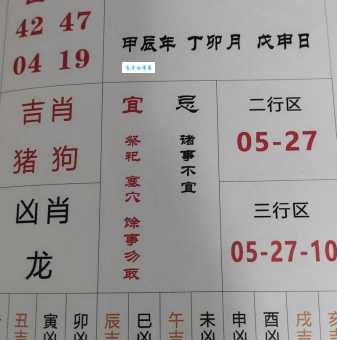 42 47
04 19
甲辰年 丁卯月 戊申日
吉肖
猪 狗
宜
祭祀 塞穴 馀事勿取
忌
诸事不宜
二行区
05-27
凶肖
龙
三行区
05-27-10
丑 寅 卯 辰 巳 午 未 申 酉 戌 亥
吉 凶 凶 吉 凶 吉 凶 凶 凶 吉 吉